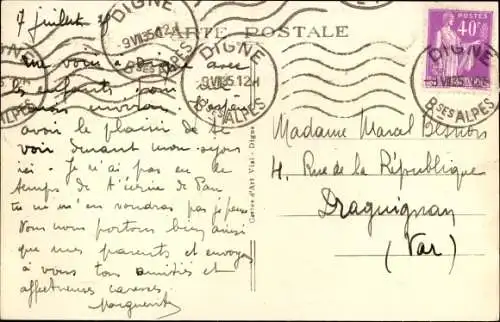 7 juillet 35
CARTE POSTALE
DIGNE
9 VII 35 12H
Bses ALPES
DIGNE
9 VII 35 12H
Bses ALPES
DIGNE
Bses ALPES
POSTES
40c
me voici à Digne avec
les enfants pour
mois environ
J'espère
avoir le plaisir de te
voir durant mon séjour
ici. Je n'ai pas eu de
temps de t'écrire de Pau
tu ne m'en voudras pas je pense
Nous nous portons bien ainsi
que mes parents et envoyons
à vous tous amitiés et
affectueuses caresses.
Marguerite
Cartes d'Art Vial - Digne
Madame Marcel
4, Rue de la République
Draguignan
(Var)